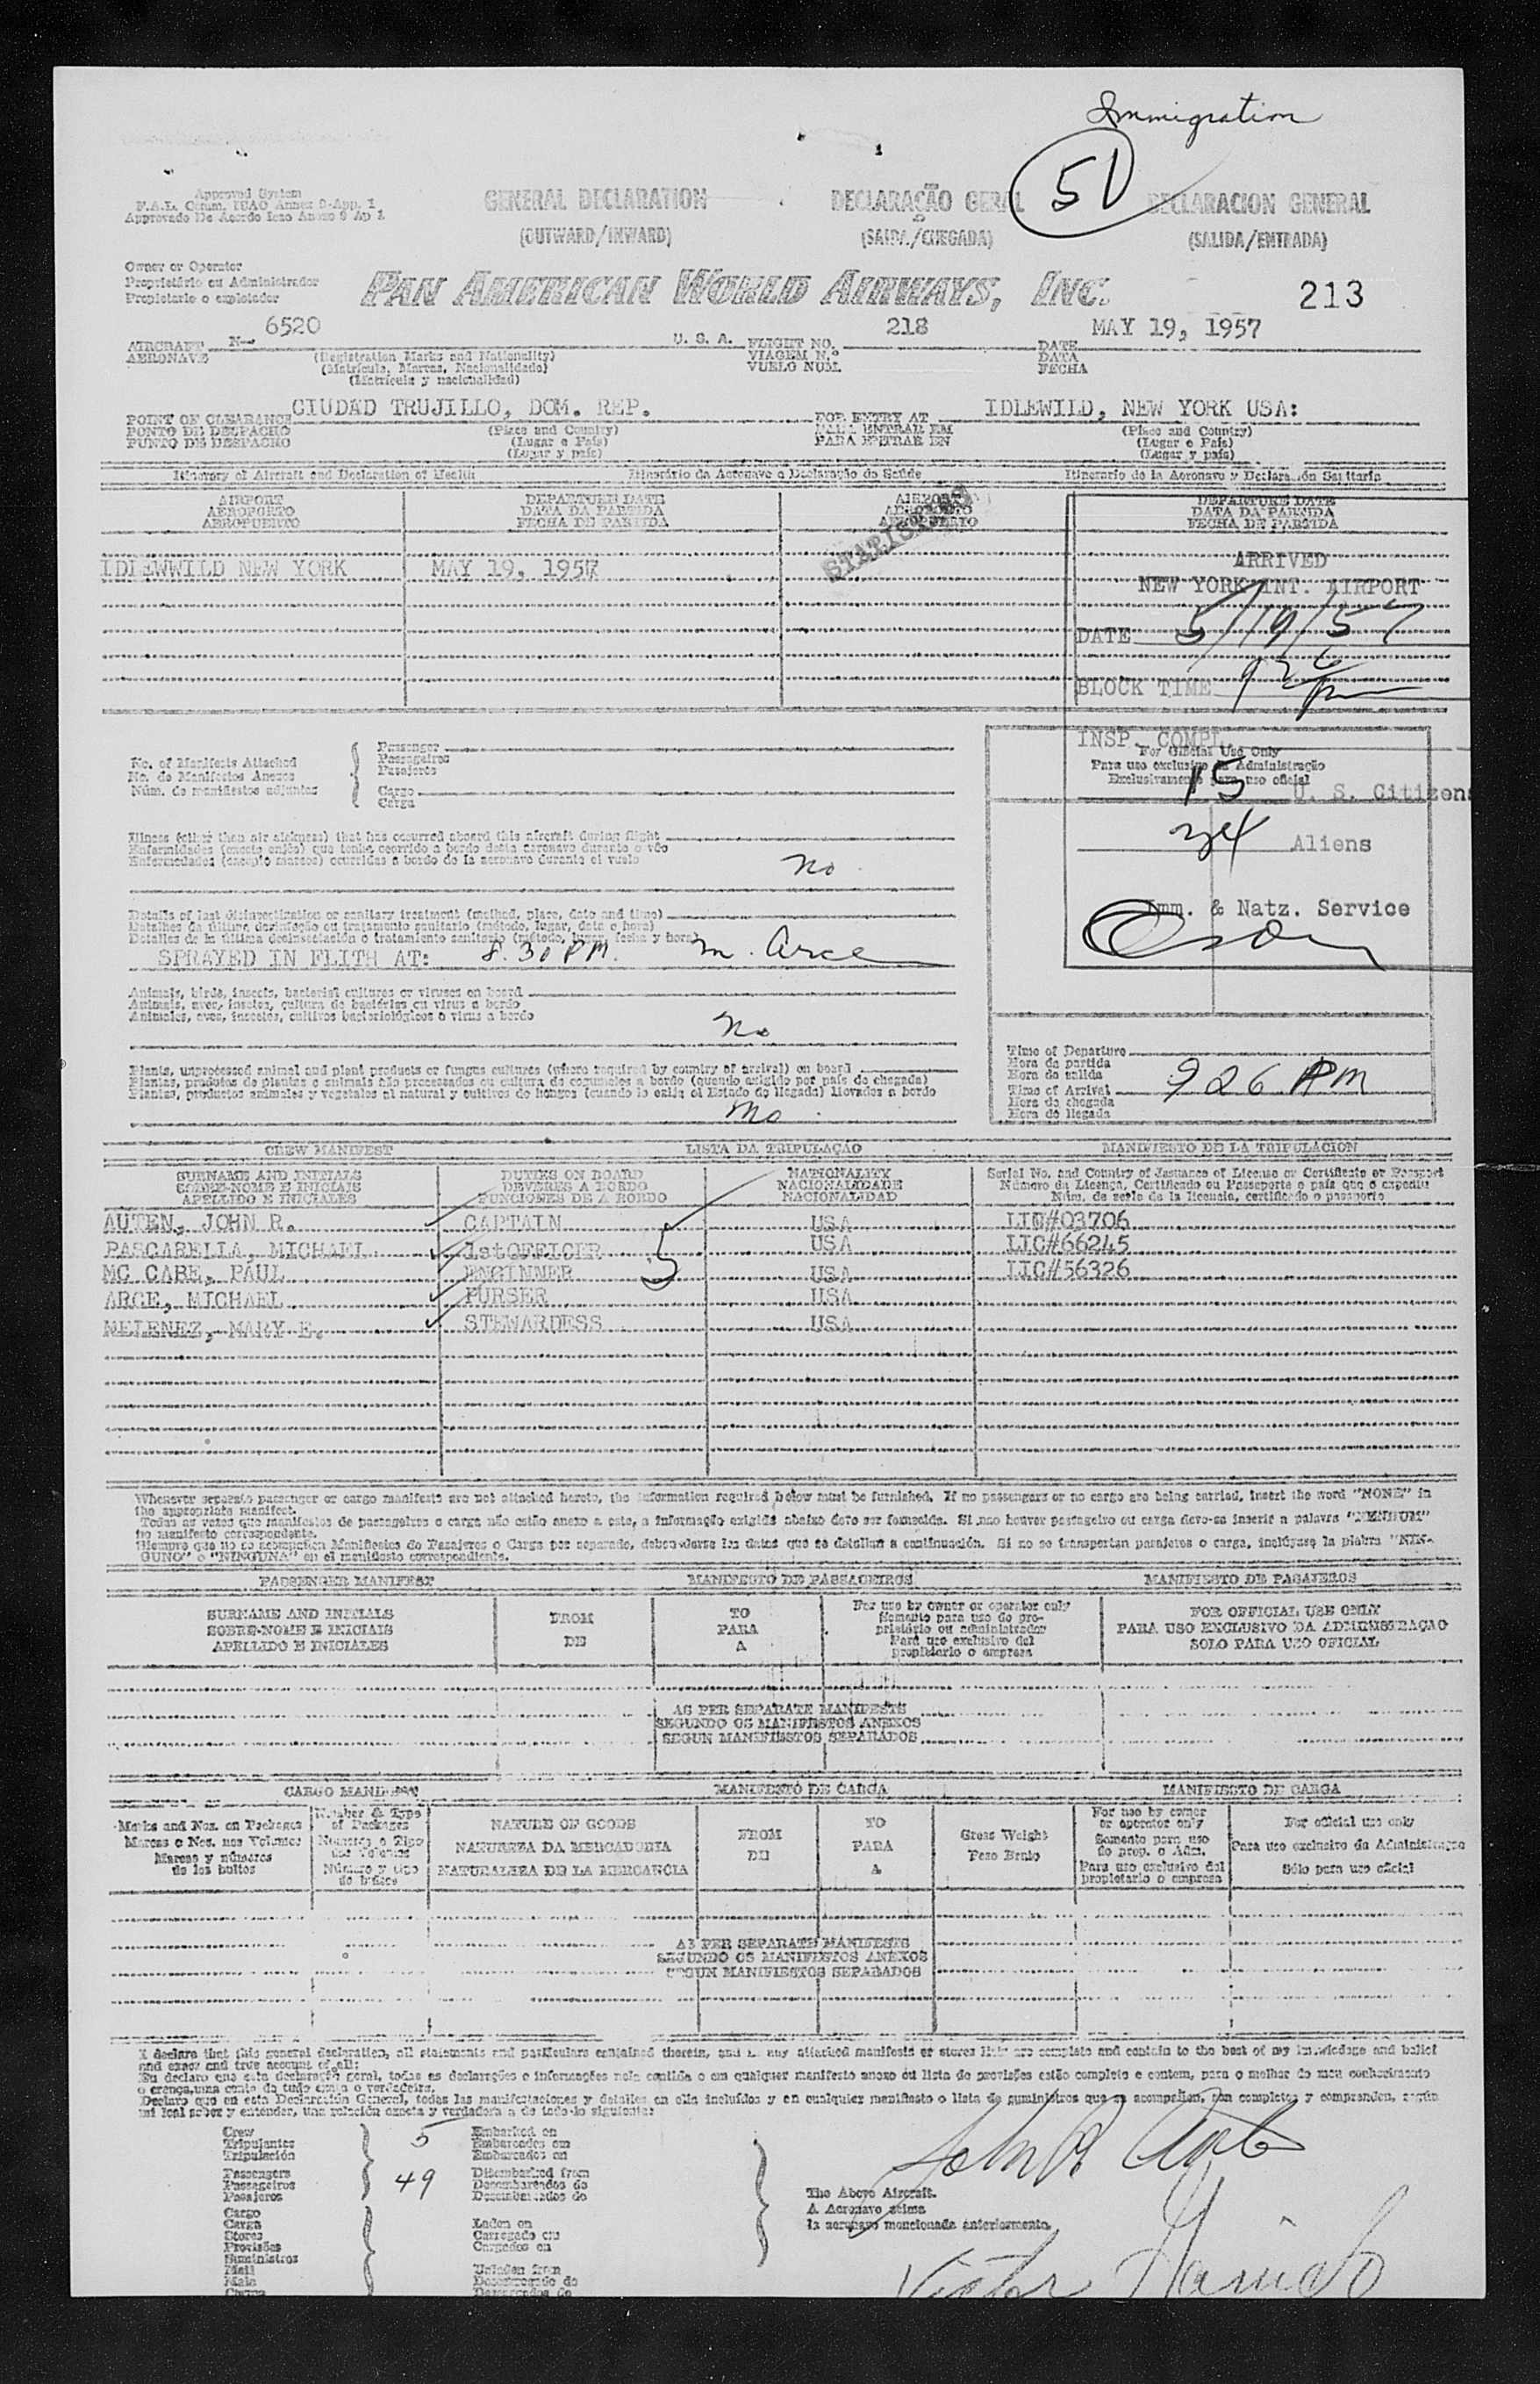 Immigration
51
Approved System
F.A.L. Comm. ICAO Annex 9-App. 1
GENERAL DECLARATION
(OUTWARD/INWARD)
DECLARAÇÃO GERAL
(SAIDA/CHEGADA)
DECLARACION GENERAL
(SALIDA/ENTRADA)
Owner or Operator
Proprietário ou Administrador
Propietario o explotador
PAN AMERICAN WORLD AIRWAYS, INC.
213
AIRCRAFT N- 6520 U. S. A.
AERONAVE
(Registration Marks and Nationality)
(Matrícula, Marcas, Nacionalidade)
(Matrícula y nacionalidad)
FLIGHT NO. 218
VIAGEM N.º
VUELO NUM.
DATE MAY 19, 1957
DATA
FECHA
POINT OF CLEARANCE CIUDAD TRUJILLO, DOM. REP.
PONTO DE DESPACHO
PUNTO DE DESPACHO
(Place and Country)
(Lugar e País)
(Lugar y país)
FOR ENTRY AT IDLEWILD, NEW YORK USA:
PARA ENTRAR EM
PARA ENTRAR EN
(Place and Country)
(Lugar e País)
(Lugar y país)
Itinerary of Aircraft and Declaration of Health
Itinerário da Aeronave e Declaração de Saúde
Itinerario de la Aeronave y Declaración Sanitaria
AIRPORT
AEROPORTO
AEROPUERTO
DEPARTURE DATE
DATA DA PARTIDA
FECHA DE PARTIDA
AIRPORT
AEROPORTO
AEROPUERTO
DEPARTURE DATE
DATA DA PARTIDA
FECHA DE PARTIDA
IDLEWWILD NEW YORK MAY 19, 1957
ARRIVED
NEW YORK INT. AIRPORT
DATE 5/19/57
BLOCK TIME 926 pm
INSP. COMPL
For Official Use Only
Para uso exclusivo da Administração
Exclusivamente para uso oficial
15 U. S. Citizens
34 Aliens
Imm. & Natz. Service
No. of Manifests Attached
No. de Manifestos Anexos
Núm. de manifiestos adjuntos
Passenger
Passageiros
Pasajeros
Cargo
Carga
Illness (other than air sickness) that has occurred aboard this aircraft during flight
Enfermidades (exceto enjôo) que tenha ocorrido a bordo desta aeronave durante o vôo
Enfermedades (excepto mareos) ocurridas a bordo de la aeronave durante el vuelo
No
Details of last disinsectization or sanitary treatment (method, place, date and time)
Detalhes da última desinfeção ou tratamento sanitario (método, lugar, data e hora)
Detalles de la última desinsectación o tratamiento sanitario (método, lugar, fecha y hora)
SPRAYED IN FLITH AT: 8.30 PM. M. Arce
Animals, birds, insects, bacterial cultures or viruses on board
Animais, aves, insetos, cultura de bactérias ou virus a bordo
Animales, aves, insectos, cultivos bacteriológicos o virus a bordo
No
Plants, unprocessed animal and plant products or fungus cultures (where required by country of arrival) on board
Plantas, produtos de plantas e animais não processados ou cultura de cogumelos a bordo (quando exigido por país de chegada)
Plantas, productos animales y vegetales al natural y cultivos de hongos (cuando lo exija el Estado de llegada) llevados a bordo
No
Time of Departure
Hora da partida
Hora de salida
Time of Arrival 926 PM
Hora da chegada
Hora de llegada
CREW MANIFEST
LISTA DA TRIPULAÇÃO
MANIFIESTO DE LA TRIPULACION
SURNAME AND INITIALS
SOBRE-NOME E INICIAIS
APELLIDO E INICIALES
DUTIES ON BOARD
DEVERES A BORDO
FUNCIONES DE A BORDO
NATIONALITY
NACIONALIDADE
NACIONALIDAD
Serial No. and Country of Issuance of License or Certificate or Passport
Número da Licença, Certificado ou Passaporte e país que o expediu
Núm. de serie de la licencia, certificado o pasaporte
AUTEN, JOHN R. CAPTAIN USA LIC#03706
PASCARELLA, MICHAEL 1stOFFICER USA LIC#66245
MC CABE, PAUL ENGINNER USA LIC#56326
ARCE, MICHAEL PURSER USA
MELENEZ, MARY E. STEWARDESS USA
5
Whenever separate passenger or cargo manifests are not attached hereto, the information required below must be furnished. If no passengers or no cargo are being carried, insert the word "NONE" in
the appropriate manifest.
Todas as vezes que manifestos de passageiros e carga não estão anexo a este, a informação exigida abaixo deve ser fornecida. Si não houver passageiro ou carga deve-se inserir a palavra "NENHUM"
no manifesto correspondente.
Siempre que no se acompañen Manifiestos de Pasajeros o Carga por separado, deben darse los datos que se detallan a continuación. Si no se transportan pasajeros o carga, inclúyase la plabra "NIN-
GUNO" o "NINGUNA" en el manifiesto correspondiente.
PASSENGER MANIFEST
MANIFESTO DE PASSAGEIROS
MANIFIESTO DE PASAJEROS
SURNAME AND INITIALS
SOBRE-NOME E INICIAIS
APELLIDO E INICIALES
FROM
DE
TO
PARA
A
For use by owner or operator only
Somente para uso do pro-
prietário ou administrador
Para uso exclusivo del
propietario o empresa
FOR OFFICIAL USE ONLY
PARA USO EXCLUSIVO DA ADMINISTRAÇAO
SOLO PARA USO OFICIAL
AS PER SEPARATE MANIFESTS
SEGUNDO OS MANIFESTOS ANEXOS
SEGUN MANIFIESTOS SEPARADOS
CARGO MANIFEST
MANIFESTO DE CARGA
MANIFIESTO DE CARGA
Marks and Nos. on Packages
Marcas e Nos. nos Volumes
Marcas y números
de los bultos
Number & Type
of Packages
Número e Tipo
dos Volumes
Número y tipo
de bultos
NATURE OF GOODS
NATUREZA DA MERCADORIA
NATURALEZA DE LA MERCANCIA
FROM
DE
TO
PARA
A
Gross Weight
Peso Bruto
For use by owner
or operator only
Somente para uso
do prop. o Adm.
Para uso exclusivo del
propietario o empresa
For official use only
Para uso exclusivo da Administração
Sólo para uso oficial
AS PER SEPARATE MANIFESTS
SEGUNDO OS MANIFIESTOS ANEXOS
SEGUN MANIFIESTOS SEPARADOS
I declare that this general declaration, all statements and particulars contained therein, and in any attached manifests or stores lists are complete and contain to the best of my knowledge and belief
and exact and true account of all:
Eu declaro que esta declaração geral, todas as declarações e informações nela contida e em qualquer manifesto anexo ou lista de provisões estão completo e contem, para o melhor do meu conhecimento
e crença, uma conta de tudo exata e verdadeira.
Declaro que en esta Declaración General, todas las manifestaciones y detalles en ella incluídos y en cualquier manifiesto o lista de suministros que se acompañan, son completos y comprenden, según
mi leal saber y entender, una relación exacta y verdadera a de todo lo siguiente:
Crew 5 Embarked on
Tripulantes Embarcados em
Tripulación Embarcados en
Passengers 49 Disembarked from
Passageiros Desembarcados de
Pasajeros Desembarcados de
Cargo
Carga
Stores Laden on
Provisões Carregado em
Suministros Cargados en
Mail Unladen from
Mala Descarregado de
The Above Aircraft.
A Aeronave acima
la aeronave mencionada anteriormente
John R Auten
Victor Garrido